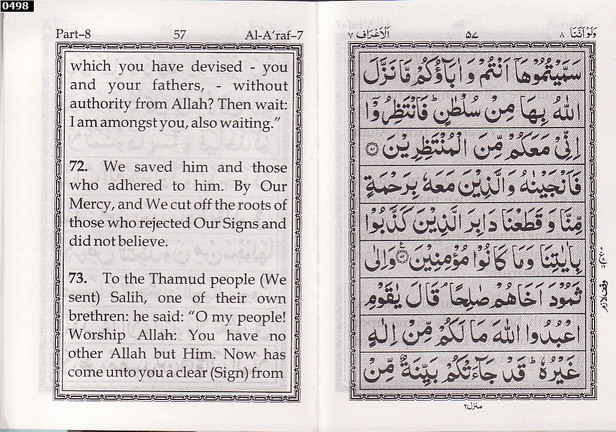 0498
Part–8 57 Al-A'raf–7
which you have devised - you
and your fathers, - without
authority from Allah? Then wait:
I am amongst you, also waiting."
72. We saved him and those
who adhered to him. By Our
Mercy, and We cut off the roots of
those who rejected Our Signs and
did not believe.
73. To the Thamud people (We
sent) Salih, one of their own
brethren: he said: "O my people!
Worship Allah: You have no
other Allah but Him. Now has
come unto you a clear (Sign) from
وَلَوْ اَنَّنَا ٨ ٥٧ اَلْاَعْرَاف ٧
سَمَّيْتُمُوْهَاۤ اَنْتُمْ وَ اٰبَآؤُكُمْ مَّا نَزَّلَ
اللّٰهُ بِهَا مِنْ سُلْطٰنٍ ؕ فَانْتَظِرُوْۤا
اِنِّیْ مَعَكُمْ مِّنَ الْمُنْتَظِرِيْنَ ۝٧١
فَاَنْجَيْنٰهُ وَ الَّذِيْنَ مَعَهٗ بِرَحْمَةٍ
مِّنَّا وَ قَطَعْنَا دَابِرَ الَّذِيْنَ كَذَّبُوْا
بِاٰيٰتِنَا وَ مَا كَانُوْا مُؤْمِنِيْنَ ۝٧٢ وَ اِلٰی
ثَمُوْدَ اَخَاهُمْ صٰلِحًا ۘ قَالَ يٰقَوْمِ
اعْبُدُوا اللّٰهَ مَا لَكُمْ مِّنْ اِلٰهٍ
غَيْرُهٗ ؕ قَدْ جَآءَتْكُمْ بَيِّنَةٌ مِّنْ
وقف لازم
منزل ٢